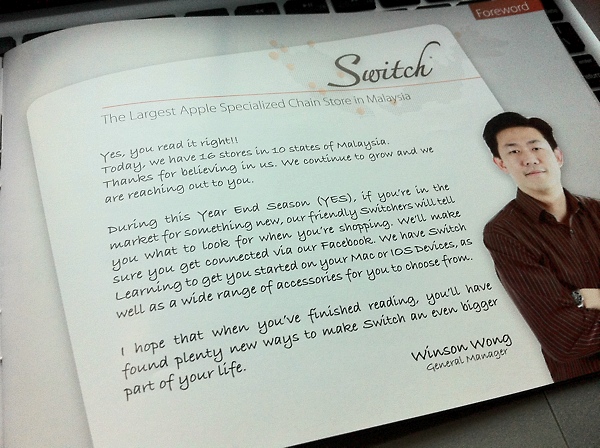 Foreword
Switch
The Largest Apple Specialized Chain Store in Malaysia
Yes, you read it right!!
Today, we have 16 stores in 10 states of Malaysia.
Thanks for believing in us. We continue to grow and we
are reaching out to you.
During this Year End Season (YES), if you're in the
market for something new, our friendly Switchers will tell
you what to look for when you're shopping. We'll make
sure you get connected via our Facebook. We have Switch
Learning to get you started on your Mac or iOS Devices, as
well as a wide range of accessories for you to choose from.
I hope that when you've finished reading, you'll have
found plenty new ways to make Switch an even bigger
part of your life.
Winson Wong
General Manager